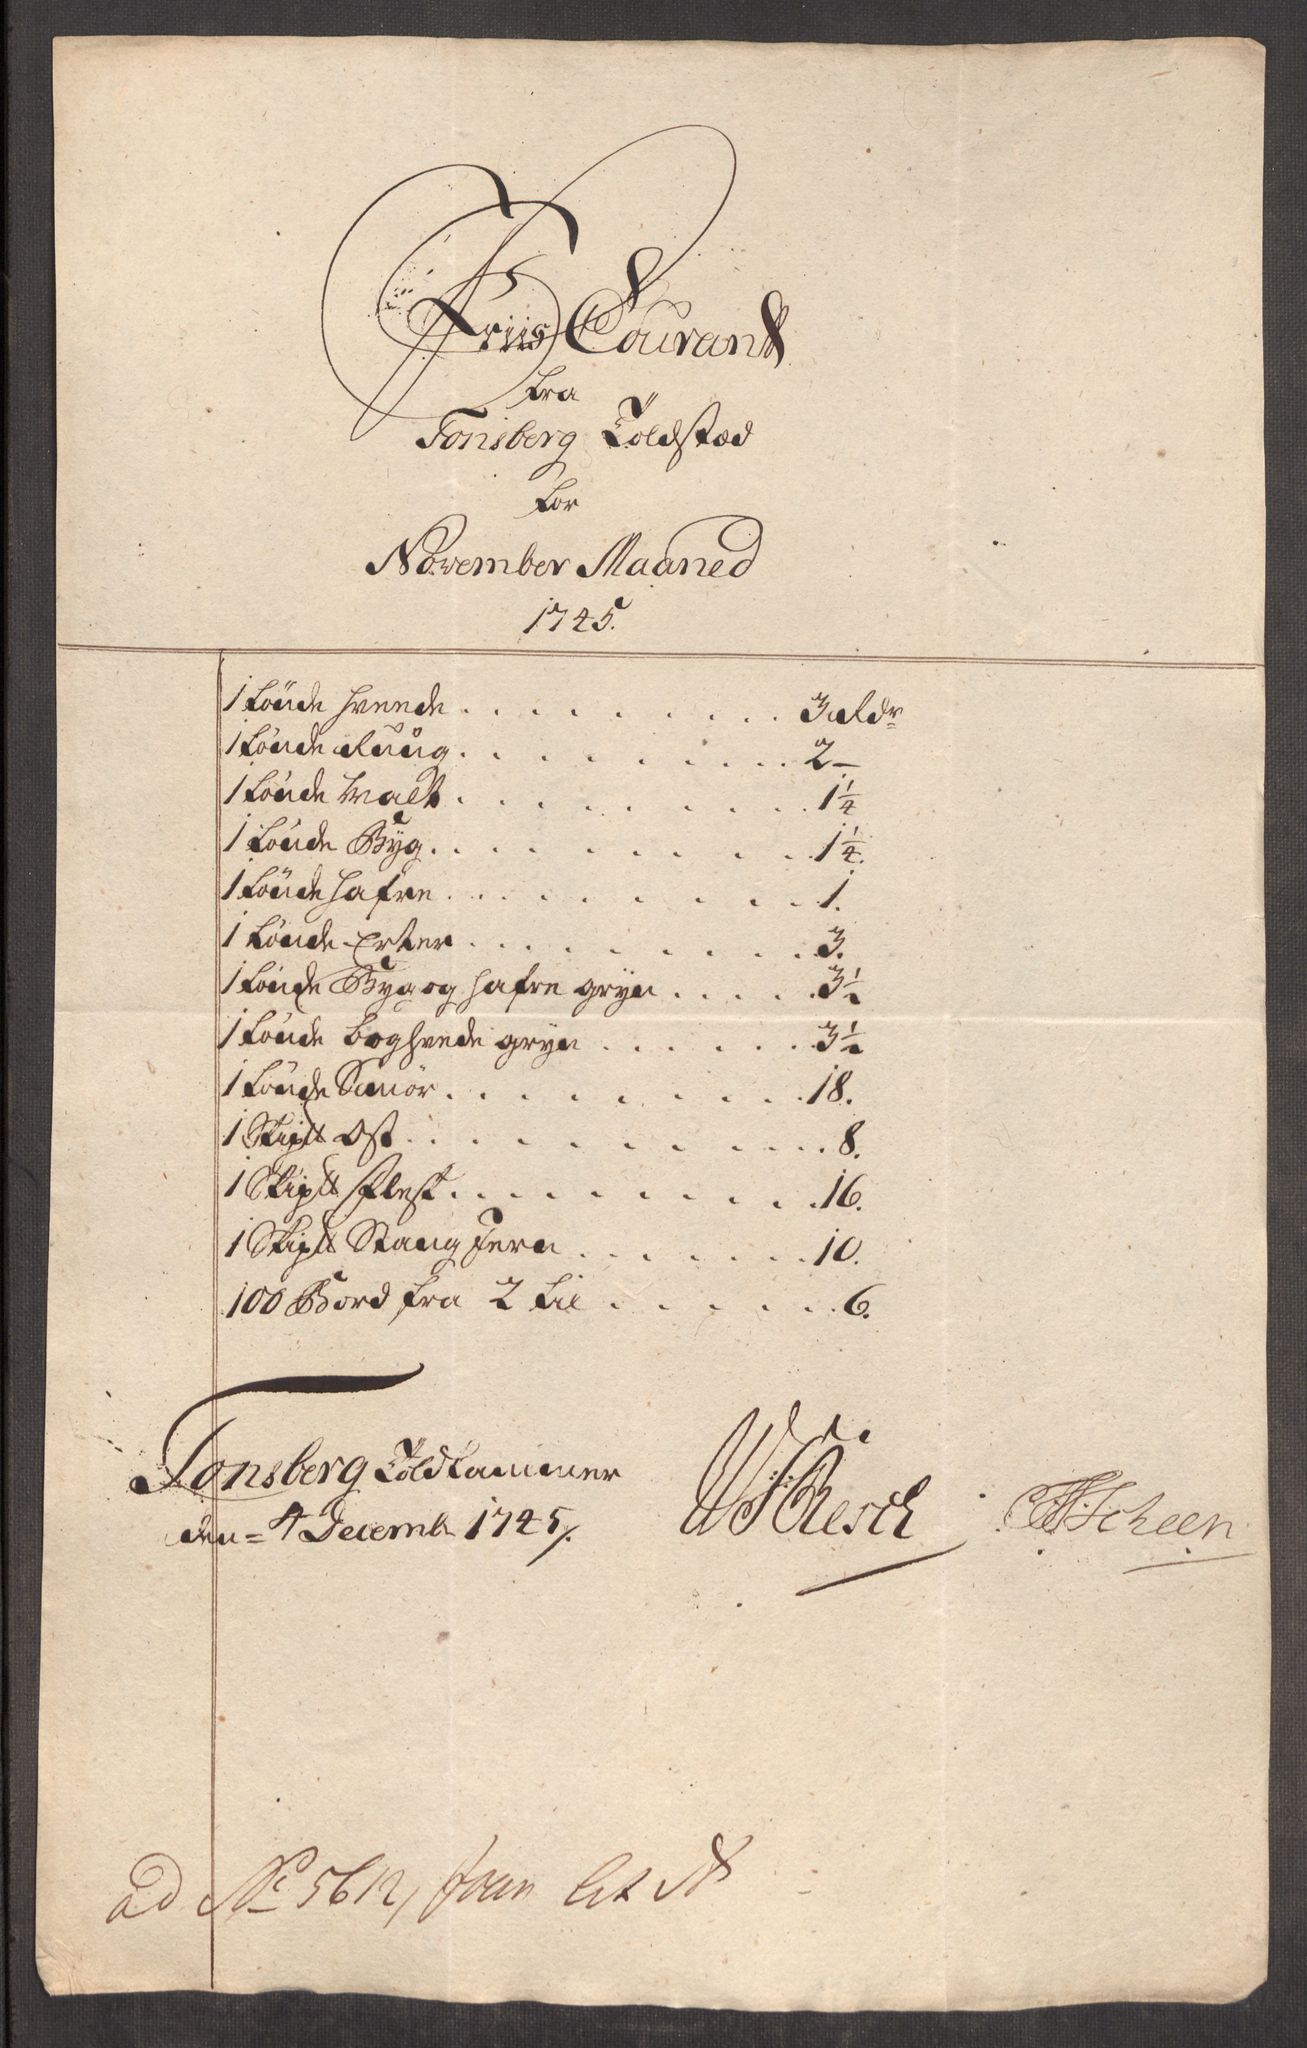 Priis Courant
fra
Tonsberg Toldsted
for
November Maaned
1745.
1 tønde hveede . . . . . . . . . 3 Rdr
1 tønde Ruug . . . . . . . . . 2 –
1 tønde Malt . . . . . . . . . 1 1/4
1 tønde Byg . . . . . . . . . 1 1/4.
1 tønde hafre . . . . . . . . . 1.
1 tønde Erter . . . . . . . . . 3.
1 tønde Byg og hafre gryn . . . . . 3 1/2
1 tønde boghvede gryn . . . . . . 3 1/2
1 tønde Smør . . . . . . . . . 18.
1 Skip℔ Ost . . . . . . . . . 8.
1 Skip℔ Flesk . . . . . . . . . 16.
1 Skip℔ Stang Jern . . . . . . 10.
100 Bord fra 2 til . . . . . . 6.
Tonsberg Toldkammer
den = 4 Decemb 1745.
Resch
Scheen
ad No 5612, Litt